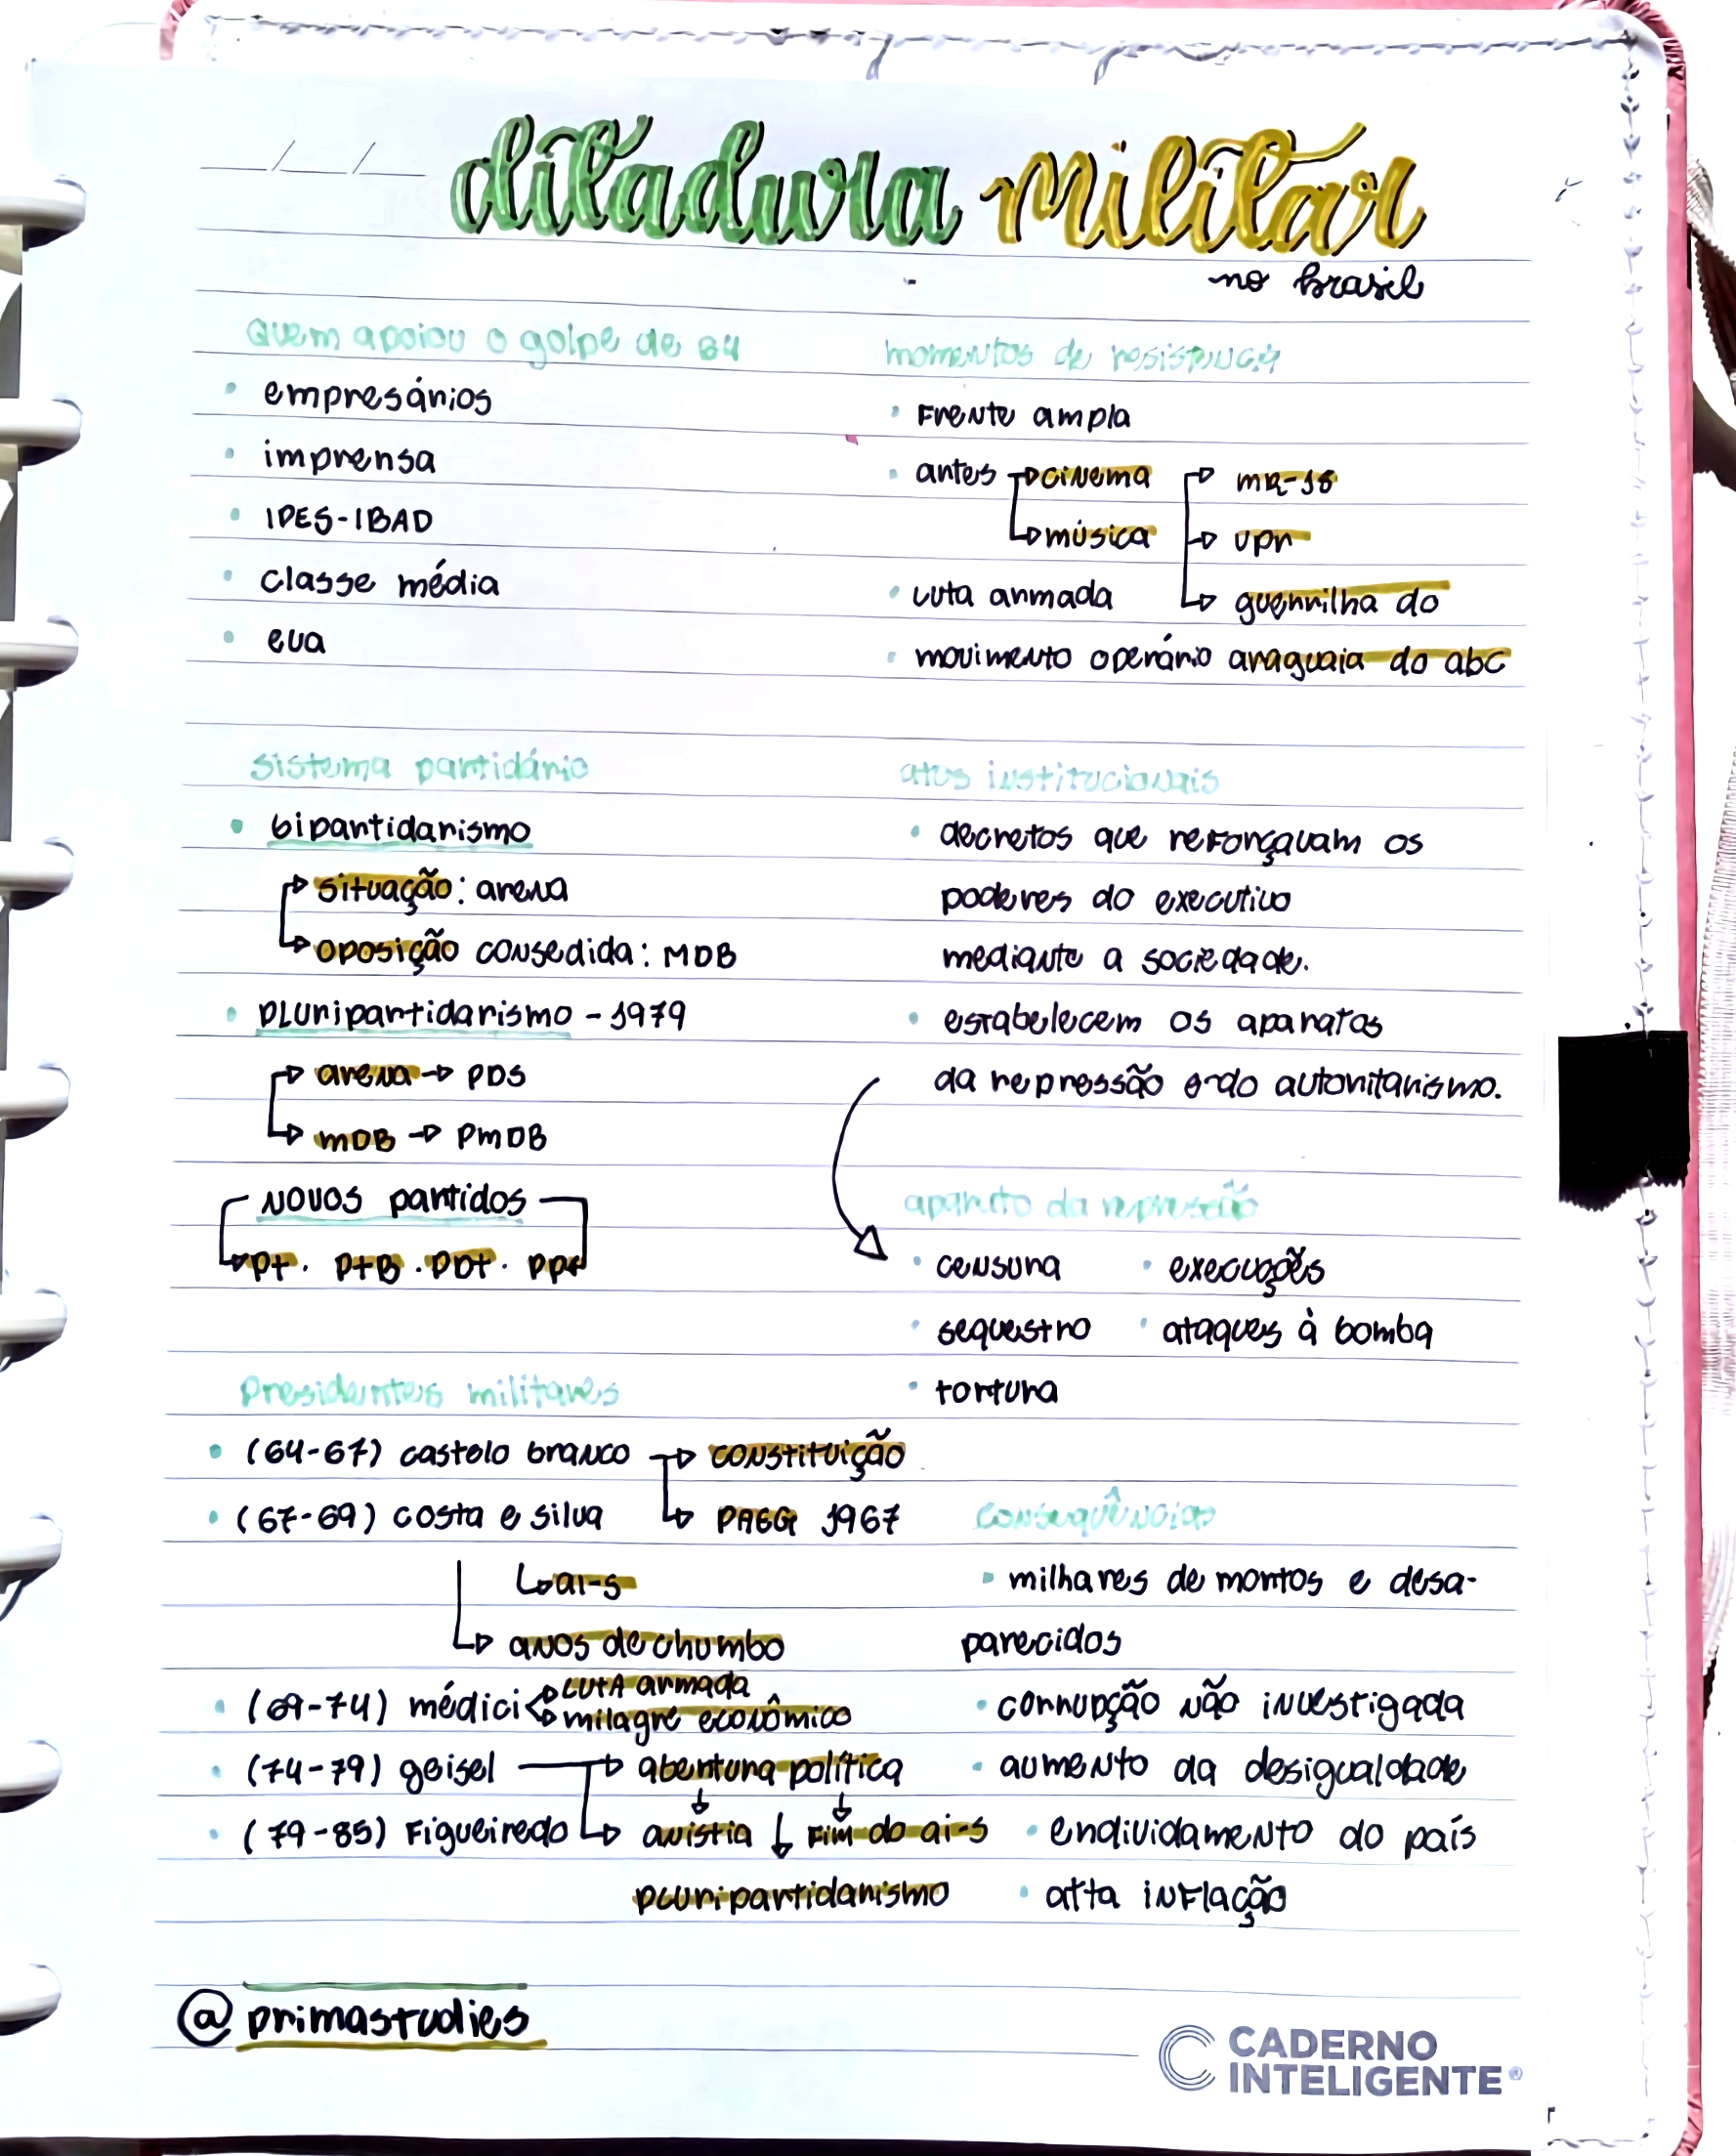 ditadura militar
no brasil
Quem apoiou o golpe de 64
• empresários
• imprensa
• IPES-IBAD
• classe média
• eua
momentos de resistência
• Frente ampla
• antes → cinema
→ música
→ mr-18
→ vpr
• luta armada → guerrilha do
• movimento operário araguaia do abc
sistema partidário
• bipartidarismo
→ situação: arena
→ oposição consedida: MDB
• pluripartidarismo - 1979
→ arena → PDS
→ mDB → PmDB
novos partidos
→ Pt. PtB. PDt.
atos institucionais
• decretos que reforçavam os
poderes do executivo
mediante a sociedade.
• estabelecem os aparatos
da repressão e do autoritarismo.
aparato da repressão
• censura • execuções
• sequestro • ataques à bomba
• tortura
Presidentes militares
• (64-67) castelo branco → constituição
• (67-69) costa e silva → PAEG 1967
↳ ai-5
→ anos de chumbo
• (69-74) médici → luta armada
→ milagre econômico
• (74-79) geisel → abertura política
• (79-85) Figueiredo → anistia ↓ Fim do ai-5
pluripartidarismo
consequências
• milhares de mortos e desa-
parecidos
• corrupção não investigada
• aumento da desigualdade
• endividamento do país
• alta inflação
@primastudies
CADERNO
INTELIGENTE®